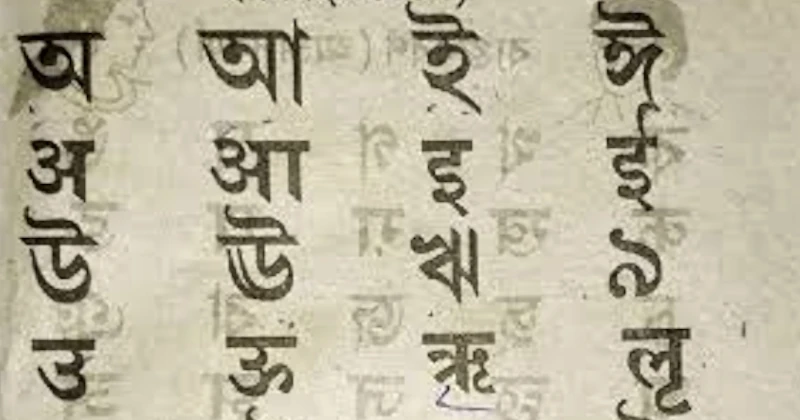 অ আ ই ঈ
अ आ इ ई
উ ঊ ঋ ঌ
उ ऊ ऋ लृ